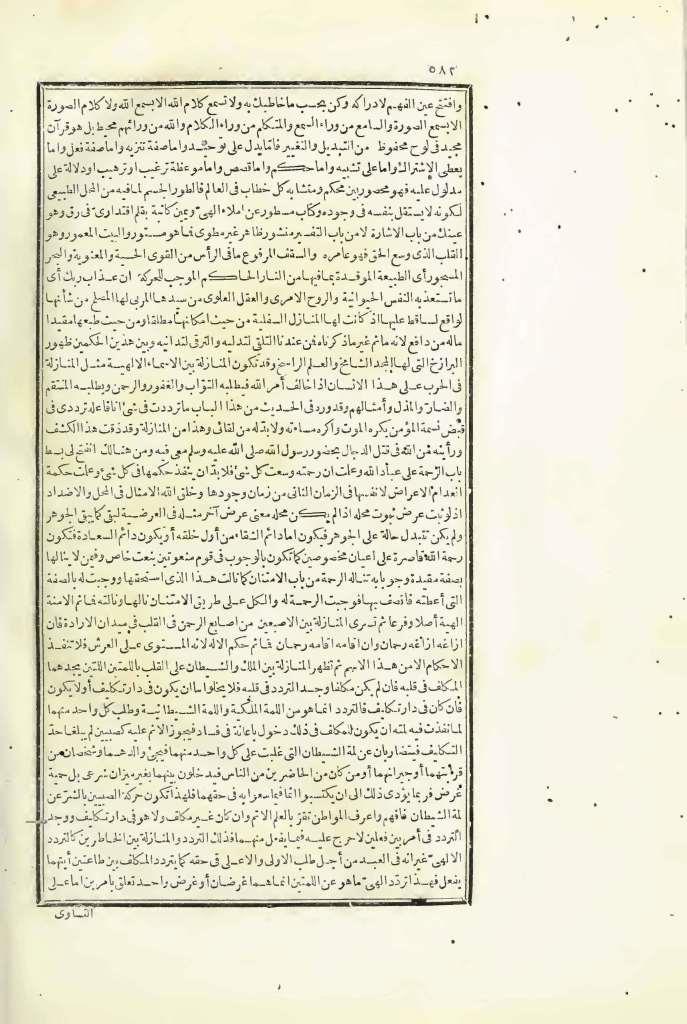 ٥٨٢
وافتح عين الفهم لادراكه وكن بحسب ما خاطبك به ولا تسمع كلام الله الا بسمع الله ولا كلام الصورة
الا بسمع الصورة والسامع من وراء السمع والمتكلم من وراء الكلام والله من ورائهم محيط بل هو قرآن
مجيد في لوح محفوظ من التبديل والتغيير فاما يدل على توحيد واما صفة تنزيه واما صفة فعل واما
يعطى الاشتراك واما على تشبيه واما حكم واما قصص واما موعظة ترغيب او ترهيب او دلالة على
مدلول عليه فهو محصور بين محكم ومتشابه كل خطاب في العالم فالطور الجسم لما فيه من الميل الطبيعي
لكونه لا يستقل بنفسه في وجوده وكتاب مسطور عن املاء الهي ويمين كاتبة بقلم اقتداري في رق وهو
عينك من باب الاشارة لا من باب التفسير منشور ظاهر غير مطوى فما هو مستور والبيت المعمور وهو
القلب الذي وسع الحق فهو عامره والسقف المرفوع ما في الرأس من القوى الحسية والمعنوية والبحر
المسجور أي الطبيعة الموقدة بما فيها من النار الحاكم الموجب للحركة ان عذاب ربك أي
ما تستعذبه النفس الحيوانية والروح الامرى والعقل العلوى من سيدها المربى لها المصلح من شأنها
لواقع لساقط عليها اذ كانت لها المنازل السفلية من حيث امكانها مطلقا ومن حيث طبعها مقيدا
ماله من دافع لانه ما ثم غير ما ذكرناه فمن عندنا التلقى لتدليه والترقى لتدانيه وبين هذين الحكمين ظهور
البرازخ التي لها المجد الشامخ والعلم الراسخ وقد تكون المنازلة بين الاسماء الالهية مثل المنازلة
في الحرب على هذا الانسان اذا خالف أمر الله فيطلبه التواب والغفور والرحمن ويطلبه المنتقم
والضار والمذل وأمثالهم وقد ورد في الحديث من هذا الباب ما ترددت في شئ انا فاعله ترددى في
قبض نسمة المؤمن يكره الموت وأكره مساءته ولا بد له من لقائى وهذا من المنازلة وقد ذقت هذا الكشف
ورأيته من الله في قتل الدجال بحضور رسول الله صلى الله عليه وسلم معى فيه ومن هنالك انفتح لى بسط
باب الرحمة على عباد الله وعلمت ان رحمته وسعت كل شئ فلا بد ان ينفذ حكمها في كل شئ وعلمت حكمة
انعدام الاعراض لانفسها في الزمان الثاني من زمان وجودها وخلق الله الامثال في المحل والاضداد
اذ لو ثبت عرض ثبوت محله اذا لم يكن محله معنى عرض آخر مثله في العرضية لبقى كما يبقى الجوهر
ولم يكن تتبدل حالة على الجوهر فيكون اما دائم الشقاء من أول خلقه أو يكون دائم السعادة فتكون
رحمة الله قاصرة على أعيان مخصوصين كما تكون بالوجوب في قوم منعوتين بنعت خاص وفيمن لا ينالها
بصفة مقيدة وجوبا به تناله الرحمة من باب الامتنان كما نالت هذا الذي استحقها ووجبت له بالصفة
التي أعطته فاتصف بها فوجبت الرحمة له والكل على طريق الامتنان نالها ونالته فما ثم الا منة
الهية أصلا وفرعا ثم تسرى المنازلة بين الاصبعين من اصابع الرحمن في القلب في ميدان الارادة فان
ازاغه أزاغه رحمان وان اقامه اقامه رحمان فما ثم حكم الا له لانه المستوى على العرش فلا تنفذ
الاحكام الا من هذا الاسم ثم تظهر المنازلة بين الملك والشيطان على القلب باللمتين اللتين يجدهما
المكلف في قلبه فان لم يكن مكلفا وجد التردد في قلبه فلا يخلو اما ان يكون في دار تكليف أو لا يكون
فان كان في دار تكليف فالتردد انما هو من اللمة الملكية واللمة الشيطانية وطلب كل واحد منهما
لما نفذت فيه لمته ان يكون للمكلف في ذلك دخول باعانة في فساد فيحوز الاثم عليه كصبيين لم يبلغا حد
التكليف فيتضاربان عن لمة الشيطان التي غلبت على كل واحد منهما فيجئ والدهما أو شخصان من
قرابتهما أو جيرانهما أو من كان من الحاضرين من الناس فيدخلون بينهما بغير ميزان شرعى بل حمية
غرض فربما يؤدى ذلك الى ان يكتسبوا اثما فيما سعوا به في حقهما فلهذا تكون حركة الصبيين بالشر عن
لمة الشيطان فافهم واعرف المواطن تفز بالعلم الاتم وان كان غير مكلف ولا هو في دار تكليف ووجد
التردد في أمر بين فعلين لا حرج عليه فيما يفعل منهما فذلك التردد والمنازلة بين الخاطرين كالتردد
الالهى غير انه في العبد من أجل طلب الاولى والاعلى في حقه كما يتردد المكلف بين طاعتين أيتهما
يفعل فهذا تردد الهى ما هو عن اللمتين انما هما غرضان أو غرض واحد تعلق بامرين اما على
التساوى